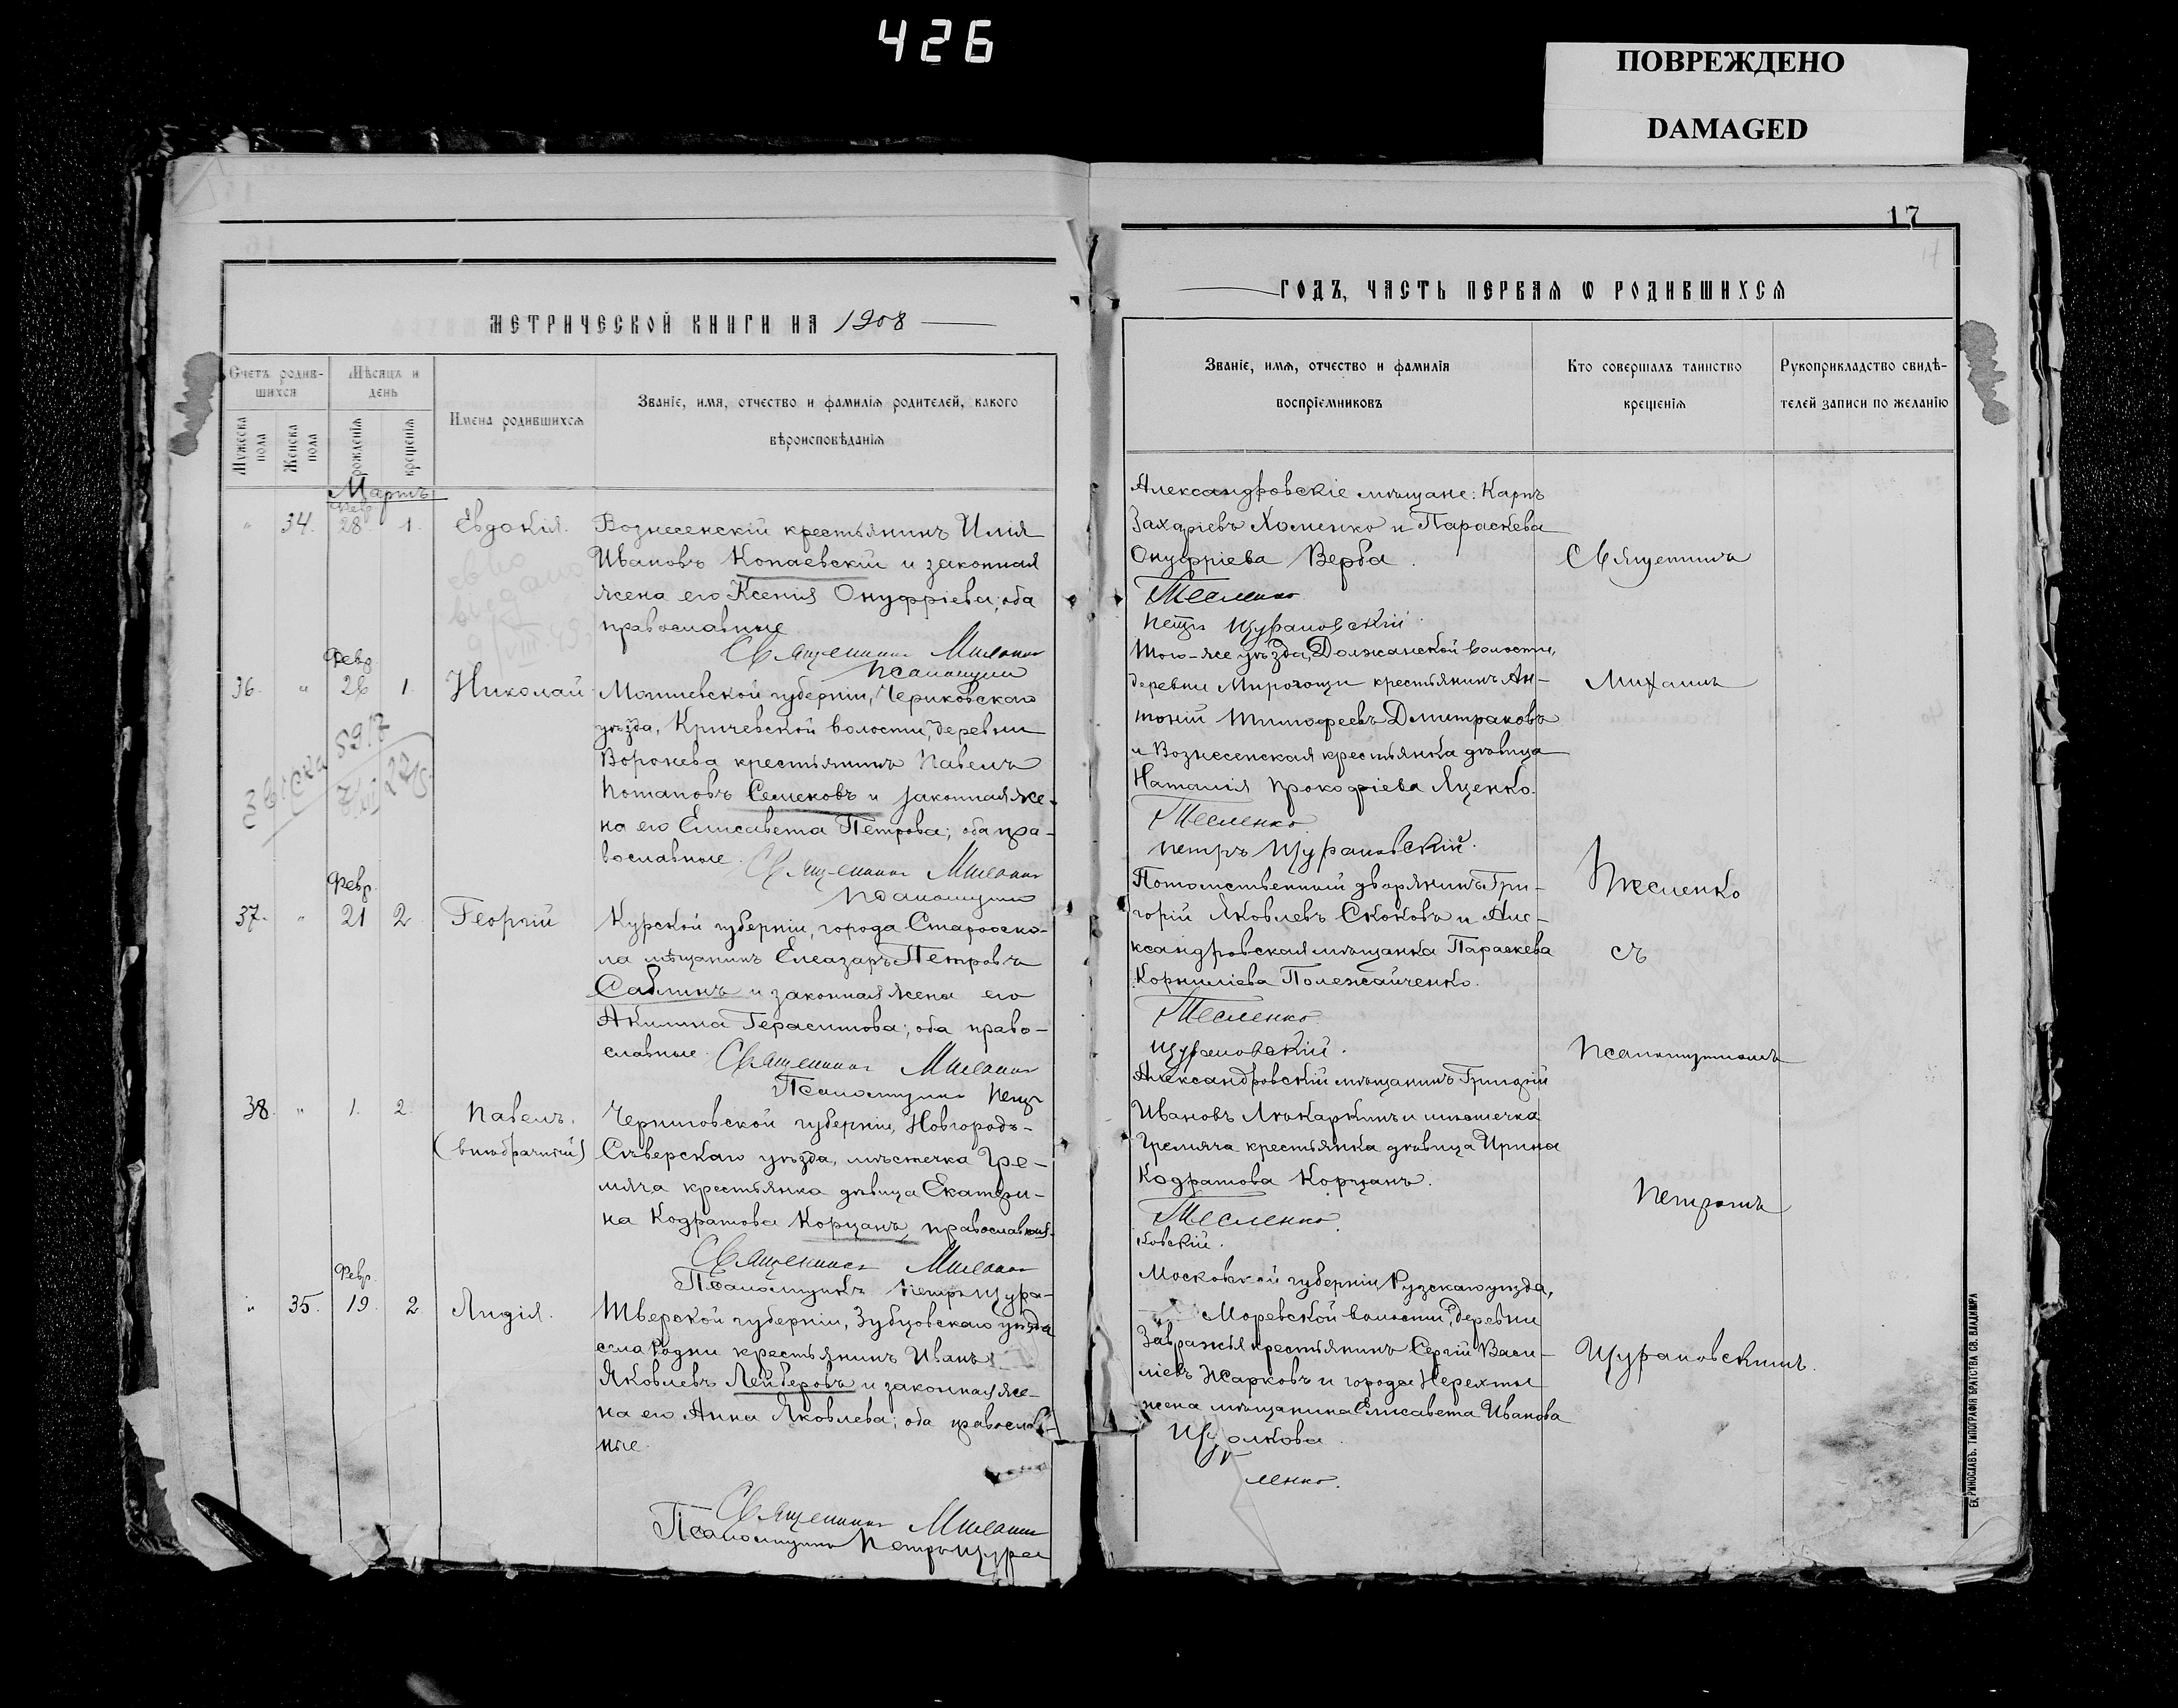 426
ПОВРЕЖДЕНО
DAMAGED
17
МЕТРИЧЕСКОЙ КНИГИ НА 1908
Счетъ родив-
шихся
Мѣсяцъ и
день
Мужеска
пола
Женска
пола
рожденія
крещенія
Имена родившихся
Званіе, имя, отчество и фамилія родителей, какого
вѣроисповѣданія
Мартъ
Февр.
" 34. 28 1. Евдокія.
Вознесенскій крестьянинъ Илія
Ивановъ Копаевскій и законная
жена его Ксенія Онуфріева; оба
православные
Священникъ Михаилъ
Псаломщикъ
Февр.
36. " 26 1. Николай
Могилевской губерніи, Чериковскаго
уѣзда, Кричевской волости, деревни
Воронева крестьянинъ Павелъ
Потаповъ Семековъ и законная же-
на его Елисавета Петрова; оба пра-
вославные.
Священникъ Михаилъ
Псаломщикъ
Февр.
37. " 21 2 Георгій
Курской губерніи, города Староско-
ла мѣщанинъ Елеазаръ Петровъ
Саблинъ и законная жена его
Акилина Герасимова; оба право-
славные.
Священникъ Михаилъ
Псаломщикъ Петръ
38. " 1. 2. Павелъ.
(внѣбрачный)
Черниговской губерніи, Новгородъ-
Сѣверскаго уѣзда, мѣстечка Гре-
мяча крестьянка дѣвица Екатери-
на Кодратова Корцанъ, православная.
Священникъ Михаилъ
Псаломщикъ Петръ Щура-
Февр.
" 35. 19. 2. Лидія.
Тверской губерніи, Зубцовскаго уѣзда
села Родни крестьянинъ Иванъ
Яковлевъ Лейберовъ и законная же-
на его Анна Яковлева; оба православ-
ные.
Священникъ Михаилъ
Псаломщикъ Петръ Щура
ГОДЪ, ЧАСТЬ ПЕРВАЯ Ѡ РОДИВШИХСЯ
Званіе, имя, отчество и фамилія
воспріемниковъ
Кто совершалъ таинство
крещенія
Рукоприкладство свидѣ-
телей записи по желанію
Александровскіе мѣщане: Карпъ
Захаріевъ Хоменко и Параскева
Онуфріева Верба.
Тесленко
Петръ Щурановскій.
Того-же уѣзда, Должанской волости,
деревни Мирогощи крестьянинъ Ан-
тоній Тимофеевъ Дмитраковъ
и Вознесенская крестьянка дѣвица
Наталія Прокофіева Яценко.
Тесленко
Петръ Щурановскій.
Потомственный дворянинъ Гри-
горій Яковлевъ Скоковъ и Але-
ксандровская мѣщанка Параскева
Корниліева Полежайченко.
Тесленко
Щурановскій.
Александровскій мѣщанинъ Григорій
Ивановъ Люкаркинъ и мѣстечка
Гремяча крестьянка дѣвица Ирина
Кодратова Корцанъ.
Тесленко
новскій.
Московской губерніи, Рузскаго уѣзда,
Моревской волости, деревни
Завражья крестьянинъ Сергій Васи-
ліевъ Жарковъ и города Нерехты
жена мѣщанина Елисавета Иванова
ленко.
Священникъ
Михаилъ
Тесленко
съ
Псаломщикомъ
Петромъ
Щурановскимъ.
ЕКАТЕРИНОСЛАВЪ. ТИПОГРАФІЯ БРАТСТВА СВ. ВЛАДИМІРА